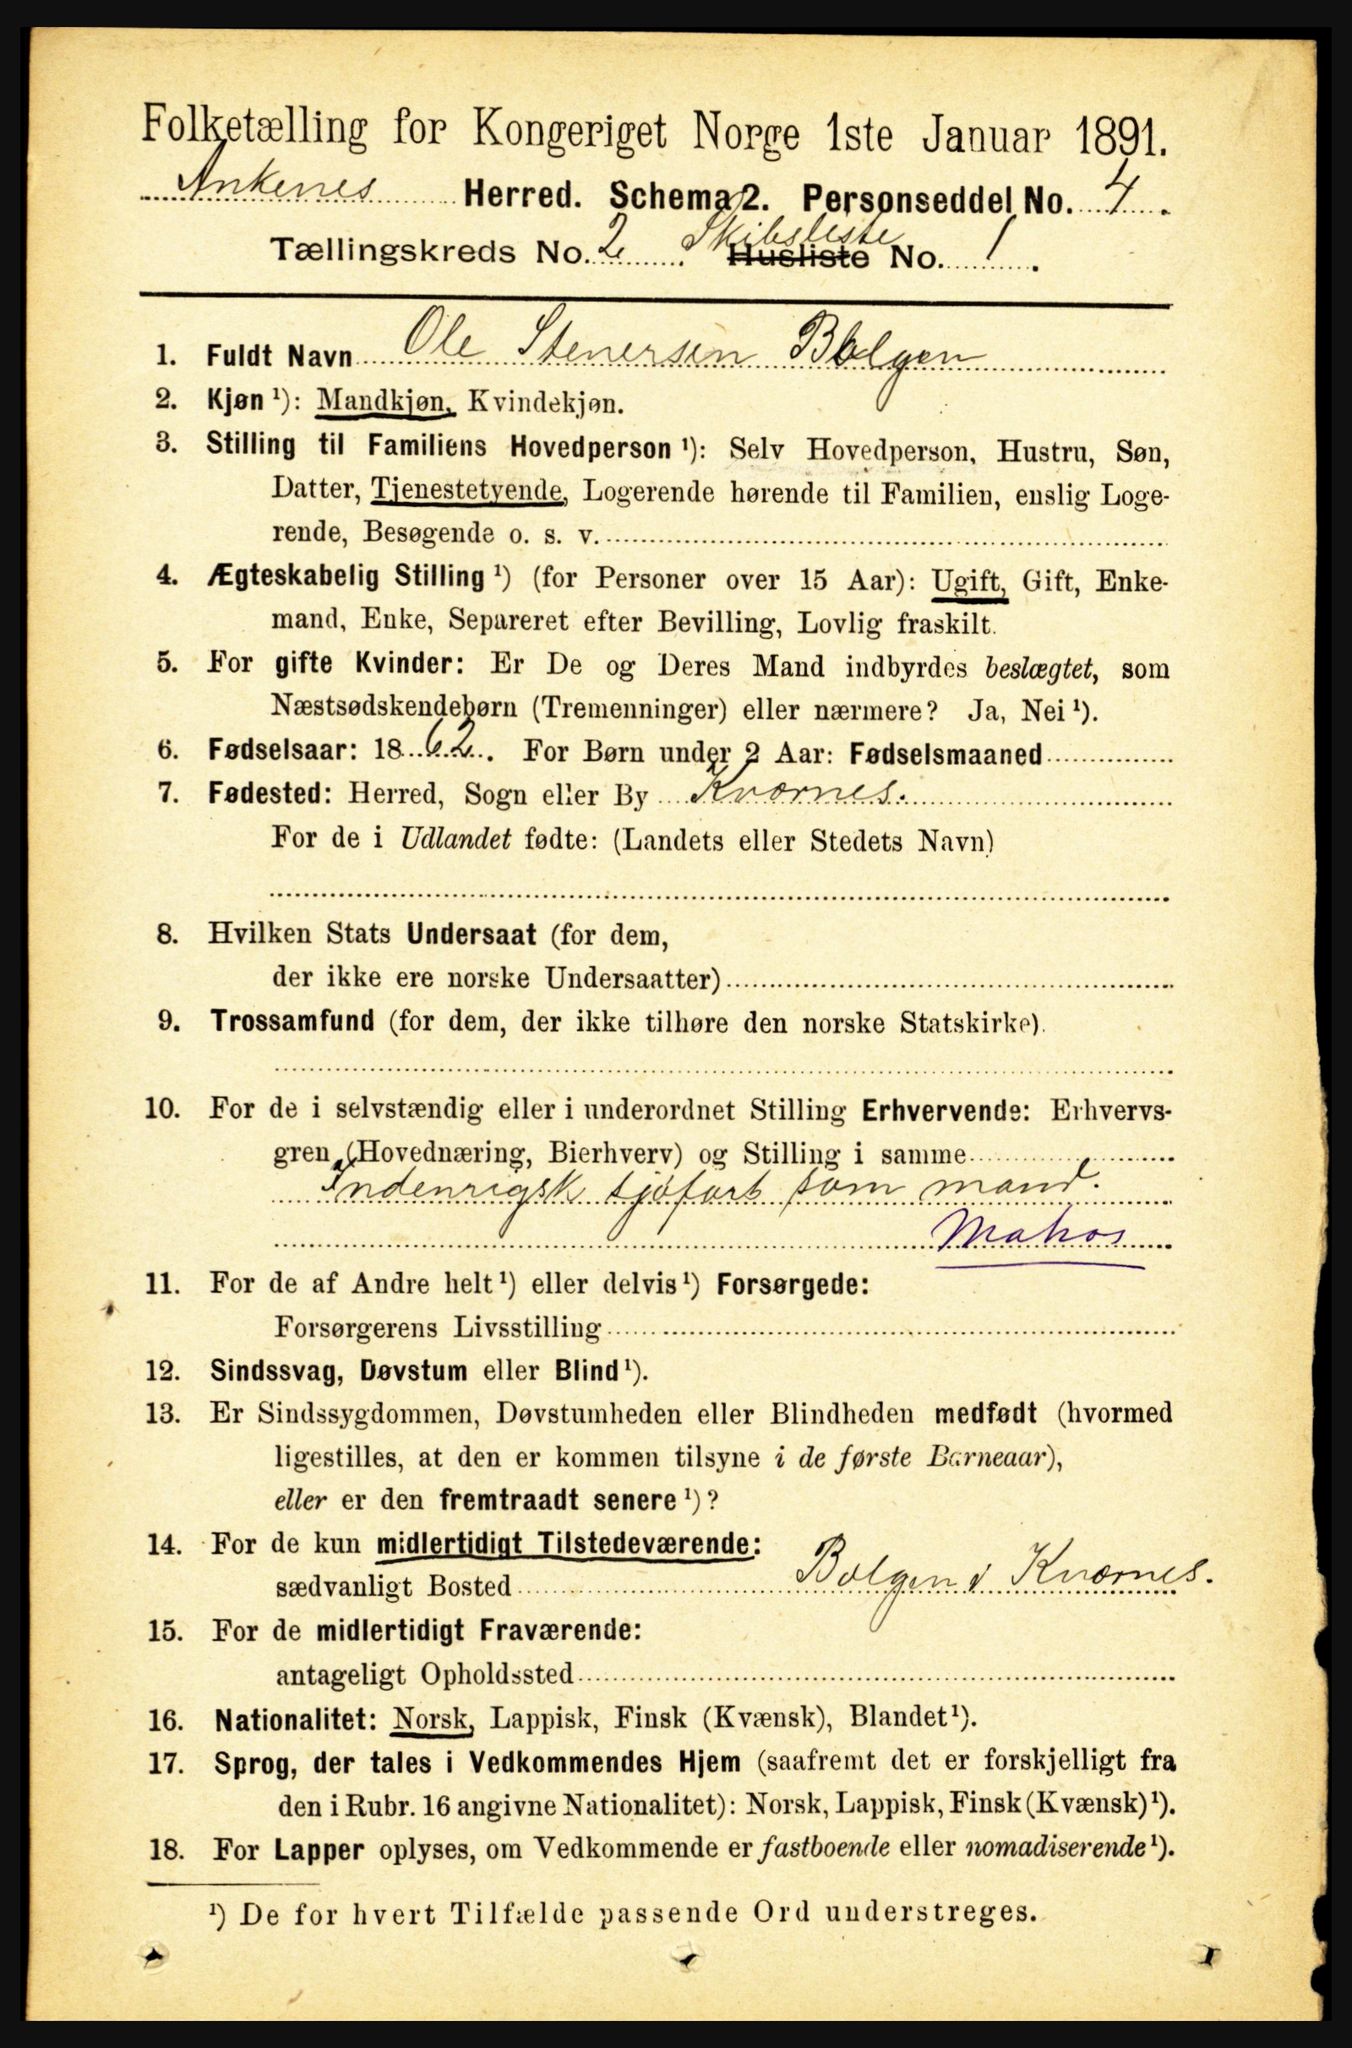 Folketælling for Kongeriget Norge 1ste Januar 1891.
Ankenes Herred. Schema 2. Personseddel No. 4.
Tællingskreds No. 2. Skibsliste Husliste No. 1.
1. Fuldt Navn Ole Stenersen Bolgen
2. Kjøn ¹): Mandkjøn, Kvindekjøn.
3. Stilling til Familiens Hovedperson ¹): Selv Hovedperson, Hustru, Søn,
Datter, Tjenestetyende, Logerende hørende til Familien, enslig Loge-
rende, Besøgende o. s. v.
4. Ægteskabelig Stilling ¹) (for Personer over 15 Aar): Ugift, Gift, Enke-
mand, Enke, Separeret efter Bevilling, Lovlig fraskilt.
5. For gifte Kvinder: Er De og Deres Mand indbyrdes beslægtet, som
Næstsødskendebørn (Tremenninger) eller nærmere? Ja, Nei ¹).
6. Fødselsaar: 1862. For Børn under 2 Aar: Fødselsmaaned
7. Fødested: Herred, Sogn eller By Kværnes.
For de i Udlandet fødte: (Landets eller Stedets Navn)
8. Hvilken Stats Undersaat (for dem,
der ikke ere norske Undersaatter)
9. Trossamfund (for dem, der ikke tilhøre den norske Statskirke).
10. For de i selvstændig eller i underordnet Stilling Erhvervende: Erhvervs-
gren (Hovednæring, Bierhverv) og Stilling i samme
Indenrigsk sjøfart som mand.
Matros
11. For de af Andre helt ¹) eller delvis ¹) Forsørgede:
Forsørgerens Livsstilling
12. Sindssvag, Døvstum eller Blind ¹).
13. Er Sindssygdommen, Døvstumheden eller Blindheden medfødt (hvormed
ligestilles, at den er kommen tilsyne i de første Barneaar),
eller er den fremtraadt senere ¹)?
14. For de kun midlertidigt Tilstedeværende:
sædvanligt Bosted Bolgen i Kværnes.
15. For de midlertidigt Fraværende:
antageligt Opholdssted
16. Nationalitet: Norsk, Lappisk, Finsk (Kvænsk), Blandet ¹).
17. Sprog, der tales i Vedkommendes Hjem (saafremt det er forskjelligt fra
den i Rubr. 16 angivne Nationalitet): Norsk, Lappisk, Finsk (Kvænsk) ¹).
18. For Lapper oplyses, om Vedkommende er fastboende eller nomadiserende ¹).
¹) De for hvert Tilfælde passende Ord understreges.